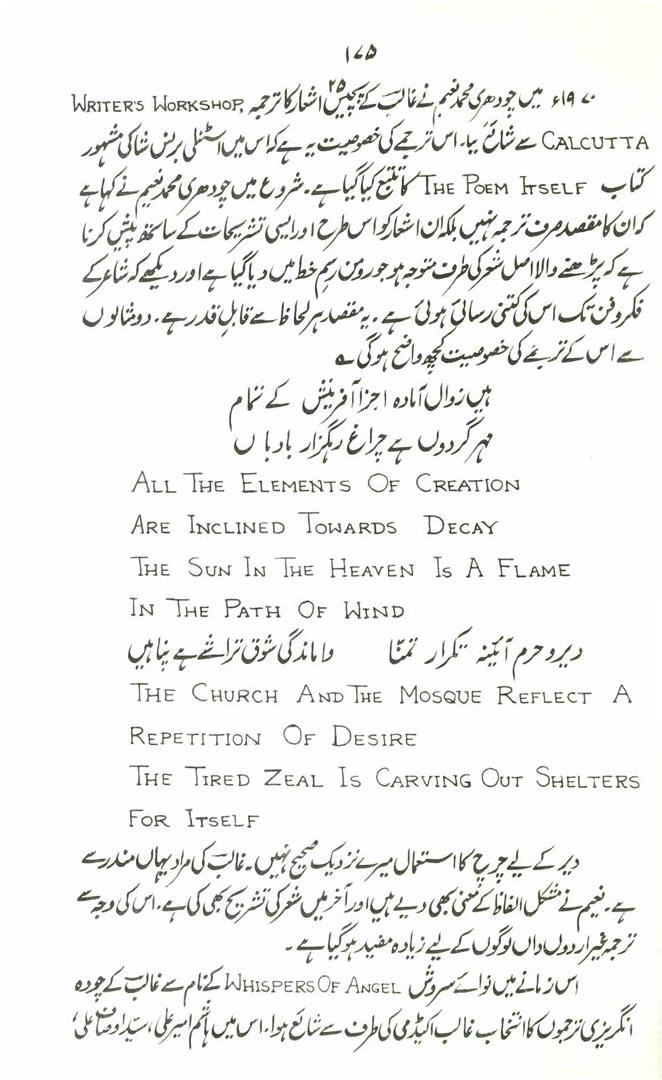 ۱۷۵
۱۹۷۰ء میں چودھری محمد نعیم نے غالبؔ کے پچیس ۲۵ اشعار کا ترجمہ WRITER'S WORKSHOP,
CALCUTTA سے شائع کیا۔ اس ترجمے کی خصوصیت یہ ہے کہ اس میں اسٹنلی برنس شا کی مشہور
کتاب THE POEM ITSELF کا تتبع کیا گیا ہے۔ شروع میں چودھری محمد نعیم نے کہا ہے
کہ ان کا مقصد صرف ترجمہ نہیں بلکہ ان اشعار کو اس طرح اور ایسی تشریحات کے ساتھ پیش کرنا
ہے کہ پڑھنے والا اصل شعر کی طرف متوجہ ہو جو رومن رسم خط میں دیا گیا ہے اور دیکھے کہ شاعر کے
فکر و فن تک اس کی کتنی رسائی ہوئی ہے۔ یہ مقصد ہر لحاظ سے قابلِ قدر ہے۔ دو مثالوں
سے اس کے ترجمے کی خصوصیت کچھ واضح ہوگی؎
ہیں زوال آمادہ اجزا آفرینش کے تمام
مہر گردوں ہے چراغ رہگزار باد یاں
ALL THE ELEMENTS OF CREATION
ARE INCLINED TOWARDS DECAY
THE SUN IN THE HEAVEN IS A FLAME
IN THE PATH OF WIND
دیر و حرم آئینہ تکرار تمنّا واماندگی شوق تراشے ہے پناہیں
THE CHURCH AND THE MOSQUE REFLECT A
REPETITION OF DESIRE
THE TIRED ZEAL IS CARVING OUT SHELTERS
FOR ITSELF
دیر کے لیے چرچ کا استعمال میرے نزدیک صحیح نہیں۔ غالبؔ کی مراد یہاں مندر سے
ہے۔ نعیم نے مشکل الفاظ کے معنی بھی دیے ہیں اور آخر میں شعر کی تشریح بھی کی ہے۔ اس کی وجہ سے
ترجمہ غیر اردو داں لوگوں کے لیے زیادہ مفید ہو گیا ہے۔
اس زمانے میں نوائے سروش WHISPERS OF ANGEL کے نام سے غالبؔ کے چودہ
انگریزی ترجموں کا انتخاب غالب اکیڈمی کی طرف سے شائع ہوا۔ اس میں ہاشم امیر علی، سید اوصاف علی،